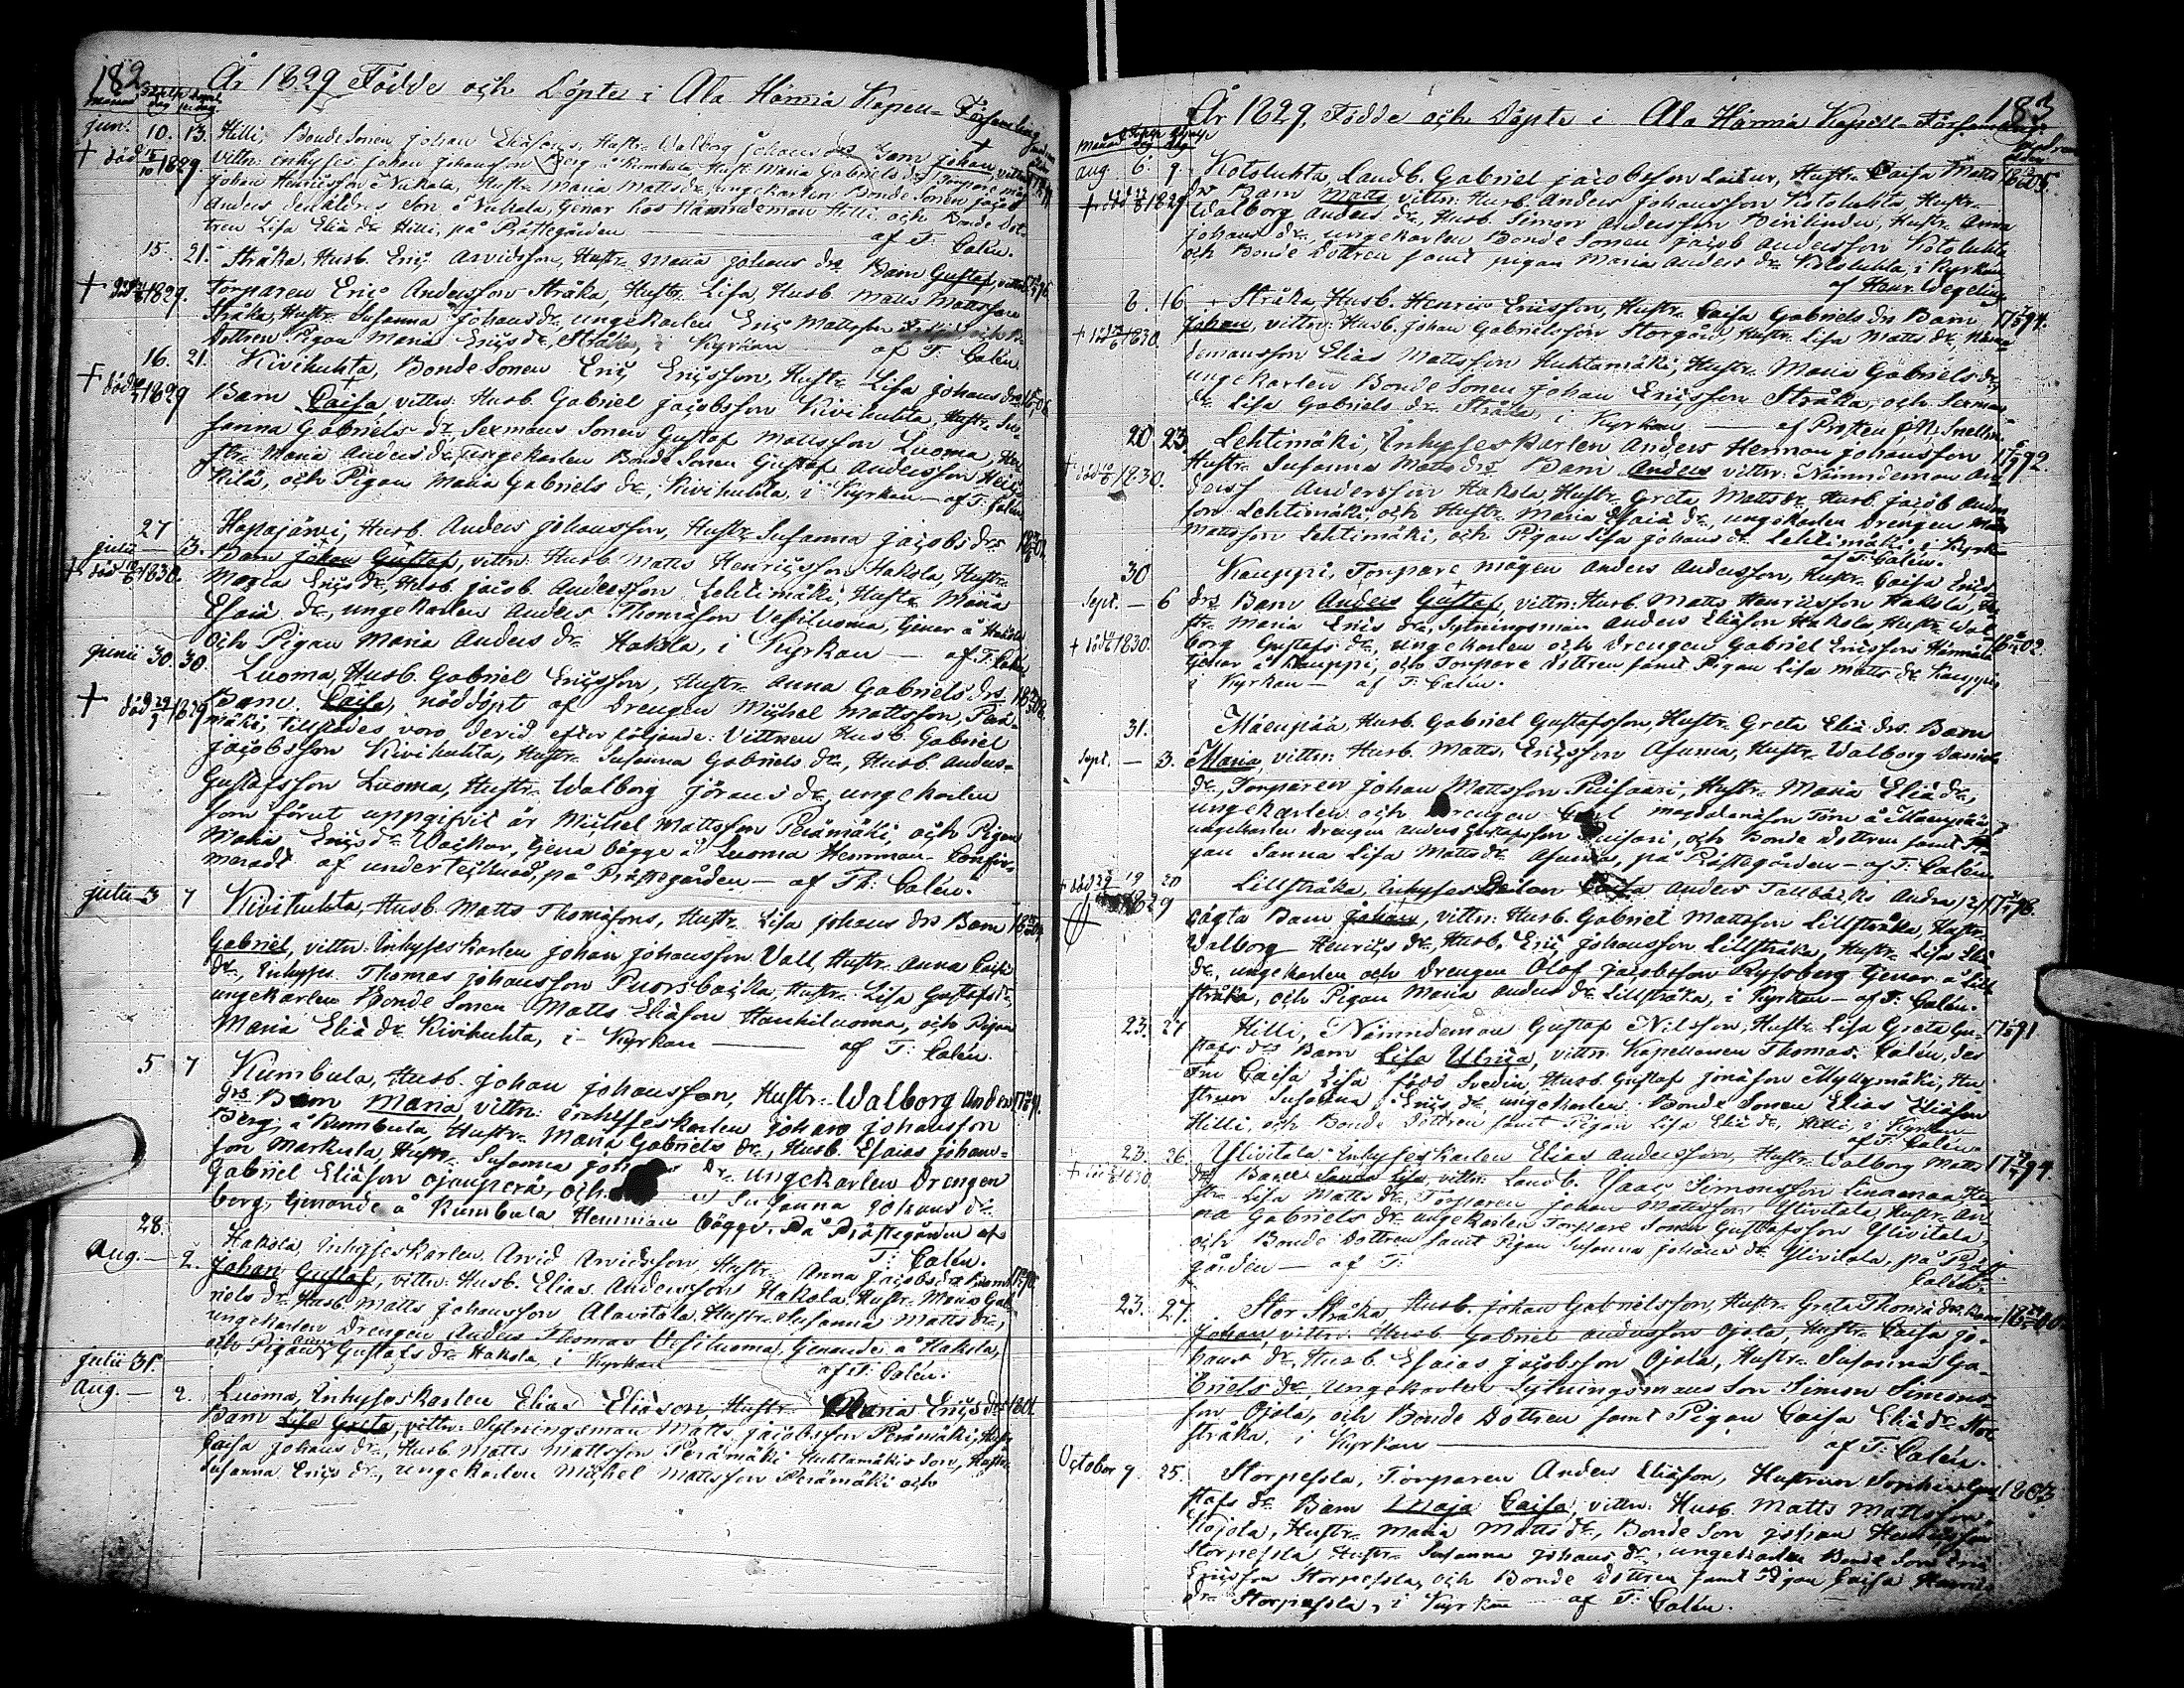 182
År 1829 Födde och Döpte i Ala Härmä Kapell-Församling
Junii 10. 13. Hilli, Bonde Sonen Johan Eliäsons, Hustr. Walborg Johans drs Barn Johan, vittn:
† död 1829. vittn: inhyses Johan Johansson Berg å Kumbula, Hustr. Maria Gabriels dr,
Johan Henricsson å Nukala, Hustr. Maria Matts dr, ungekarlen Bonde Sonen Jacob
Anders den äldres son å Nukala, tjenar hos Nämndeman Hilli, och Bonde dot-
tren Lisa Eliä dr Hilli, på Prästegården — af T. Calén.
15. 21. Stråka, Husb. Eric Arvidsson, Hustr. Maria Johans drs Barn Gustaf, vittn:
† död 1829. Torparen Eric Andersson Stråka, Hustr. Lisa, Husb. Matts Mattsson
Stråka, Hustr. Susanna Johans dr, ungekarlen Eric Mattsson
dottren Pigan Maria Erics dr, Stråka, i Kyrkan af T. Calén.
16. 21. Kivihuhta, Bonde Sonen Eric Ericsson, Hustr. Lisa Johans drs
† död 1829 Barn Caisa, vittn: Husb. Gabriel Jacobsson Kivihuhta, Hustr. Su-
sanna Gabriels dr, Sexmans Sonen Gustaf Mattsson Luoma, Hu-
str. Maria Anders dr, ungekarlen Bonde Sonen Gustaf Andersson Heic-
kilä, och Pigan Maria Gabriels dr, Kivihuhta, i Kyrkan — af T. Calén
27 Haapajärvi, Husb. Anders Johansson, Hustr. Susanna Jacobs drs
Julii — 3. Barn Johan Gustaf, vittn: Husb. Matts Henricsson Hakola, Hustr.
† död 1830. Magla Erics dr, Husb. Jacob Andersson Lehtimäki, Hustr. Maria
Esaiä dr, ungekarlen Anders Thomäson Vesiluoma, tjenar å Hakola
och Pigan Maria Anders dr Hakola, i Kyrkan — af T. Calén
Junii 30. 30. Luoma, Husb. Gabriel Ericsson, Hustr. Anna Gabriels drs
† död 1829 Barn Caisa, nöddöpt af Drengen Michel Mattsson, Perä-
mäki, tillstädes voro dervid efterföljande: Vittnen Husb. Gabriel
Jacobsson Kivihuhta, Hustr. Susanna Gabriels dr, Husb. Anders
Gustafsson Luoma, Hustr. Walborg Jörans dr, ungekarlen
som förut uppgifvit är Michel Mattsson Perämäki, och Pigan
Maria Erics dr Wacker, tjena bägge å Luoma Hemman. Confir-
meradt af undertecknad, på Prästegården — af Th: Calén.
Julii 3 7 Kivihuhta, Husb. Matts Thomäsons, Hustr. Lisa Johans drs Barn
Gabriel, vittn: Inhyseskarlen Johan Johansson Vall, Hustr. Anna Caisa
dr, Inhyses Thomas Johansson Puorsbacka, Hustr. Lisa Gustafs dr,
ungekarlen Bonde Sonen Matts Eliäson Hanhiluoma, och Pigan
Maria Eliä dr Kivihuhta, i Kyrkan — af T. Calén.
5 7 Kumbula, Husb. Johan Johansson, Hustr. Walborg Anders
drs Barn Maria, vittn: inhyseskarlen Johan Johansson
Berg, å Kumbula, Hustr. Maria Gabriels dr, Husb. Esaias Johans-
son Markula, Hustr. Susanna Joh dr, ungekarlen Drengen
Gabriel Eliäson Ojanperä, och Susanna Johans dr
berg, tjenande å Kumbula Hemman bägge. På Prästegården af
T. Calén.
28. Hakola, Inhyseskarlen Arvid Arvidsson, Hustr. Anna Jacobs drs Barn
Aug. — 2. Johan Gustaf, vittn: Husb. Elias Andersson Hakola, Hustr. Maria Gab-
riels dr, Husb. Matts Johansson Alavitala, Hustr. Susanna Matts dr,
ungekarlen Drengen Anders Thomas Vesiluoma, tjenande å Hakola,
och Pigan Anna Gustafs dr Hakola, i Kyrkan af T. Calén.
Julii 31.
Aug. — 2. Luoma, Inhyseskarlen Elias Eliäson, Hustr. Maria Erics drs 1801
Barn Lisa Greta, vittn: Sytningsman Matts Jacobsson Perämäki, Hustr.
Caisa Johans dr, Husb. Matts Mattsson Perämäki Huhtamäkis Son, Hustr.
Susanna Erics dr, ungekarlen Michel Mattsson Perämäki och
183
År 1829, Födde och Döpte i Ala Härmä Kapell-Församling
Aug. 6. 9. Kotoluhta, Landb. Gabriel Jacobsson Laitur, Hustr. Caisa Matts
† död 1829 dr Barn Matts vittn: Husb. Anders Johansson Kotoluhta, Hustr.
Walborg Anders dr, Husb. Simon Andersson, Hustr. Anna
Johans dr, ungekarlen Bonde Sonen Jacob Andersson Kotoluhta
och Bonde Dottren samt pigan Maria Anders dr Kotoluhta, i Kyrkan
af Henr. Wegelius
8. 16. Stråka, Husb. Henric Ericsson, Hustr. Caisa Gabriels drs Barn
† död 1830. Johan, vittn: Husb. Johan Gabrielsson Storgård, Hustr. Lisa Matts dr, Nämn-
demansson Elias Mattsson Huhtamäki, Hustr. Maria Gabriels dr,
ungekarlen Bonde Sonen Johan Ericsson Stråka, och Sexman
dr. Lisa Gabriels dr Stråka, i Kyrkan — af Prosten J.N. Snellm.
20. 23. Lehtimäki, Inhyseskarlen Anders Herman Johansson
† död 1830. Hustr. Susanna Matts drs Barn Anders vittn: Nämndeman An-
ders Andersson Hakola, Hustr. Greta Matts dr, Husb. Jacob Anders
son Lehtimäki, och Hustr. Maria Esaiä dr, ungekarlen Drengen
Mattsson Lehtimäki, och Pigan Lisa Johans dr Lehtimäki, i Kyrk-
af T. Calén.
30 Kauppi, Torpare mågen Anders Andersson, Hustr. Caisa Erics
Sept. — 6 drs Barn Anders Gustaf, vittn: Husb. Matts Henricsson Hakola, Hu-
str. Maria Erics dr, Sytningsman Anders Eliäson Hakola Hustr. Wal-
† död 1830. borg Gustafs dr, ungekarlen och Drengen Gabriel Ericsson Härmälä
tjenar å Kauppi, och Torpare dottren samt Pigan Lisa Matts dr Kauppi,
i Kyrkan — af T. Calén.
31. Mäenpää, Husb. Gabriel Gustafsson, Hustr. Greta Eliä drs Barn
Sept. — 3. Maria, vittn: Husb. Matts Ericsson Asuma, Hustr. Walborg Daniels
dr, Torparen Johan Mattsson Puisaari, Hustr. Maria Eliä dr,
ungekarlen och Drengen Carl Magdalenäson Törn å Mäenpää,
ungekarlen Drengen Anders Gustafsson Puisari, och Bonde Dottren samt Pi-
gan Sanna Lisa Matts dr Asuma, på Prästegården — af T. Calén
† död 19 20 Lillstråka, Inhyses Enkan Caisa Anders Tallbäcks Andra
1829 oägta Barn Johan, vittn: Husb. Gabriel Mattsson Lillstråka, Hustr.
Walborg Henrics dr, Husb. Eric Johansson Lillstråka, Hustr. Lisa Eliä
dr, ungekarlen och Drengen Olof Jacobsson Ryssberg tjenar å Lill
stråka, och Pigan Maria Anders dr Lillstråka, i Kyrkan — af T. Calén.
23. 27 Hilli, Nämndeman Gustaf Nilsson, Hustr. Lisa Greta Gu-
stafs drs Barn Lisa Ulrica, vittn: Kapellanen Thomas Calén, des
Fru Caisa Lisa född Svedin, Husb. Gustaf Jonäson Myllymäki, Hu-
strun Susanna Erics dr, ungekarlen Bonde Sonen Elias Eliäson
Hilli, och Bonde Dottren samt Pigan Lisa Eliä dr, Hilli, i Kyrkan —
af T. Calén.
23. 26. Ylivitala Inhyseskarlen Elias Andersson, Hustr. Walborg Matts
† död 1830 drs Barn Sanna Lisa, vittn: Landb. Isaac Simonsson Linnamaa, Hu-
str. Lisa Matts dr, Torparen Johan Mattsson Ylivitala, Hustr. An-
na Gabriels dr, ungekarlen Torpare Sonen Gustafsson Ylivitala,
och Bonde Dottren samt Pigan Susanna Johans dr Ylivitala, på Prest
gården — af T.
Calén.
23. 27. Stor Stråka, Husb. Johan Gabrielsson, Hustr. Greta Thomä drs Barn
Johan, vittn: Husb. Gabriel Andersson Ojala, Hustr. Caisa Jo-
hans dr, Husb. Esaias Jacobsson Ojala, Hustr. Susanna Ga-
briels dr, ungekarlen Sytningsmans Son Simon Simons
son Ojala, och Bonde Dottren samt Pigan Caisa Eliä dr Stor
stråka, i Kyrkan — af T. Calén.
October 9. 25. Storpesola, Torparen Anders Eliäson, Hustrun Sophia Gu- 1803
stafs dr Barn Maja Caisa, vittn: Husb. Matts Mattsson
Kojola, Hustr. Maria Matts dr, Bonde Son Johan Henricsson
Storpesola, Hustr. Susanna Johans dr, ungekarlen Bonde Son Eric
Ericsson Storpesola, och Bonde Dottren samt Pigan Caisa Henrics
dr Storpesola, i Kyrkan — af T. Calén.